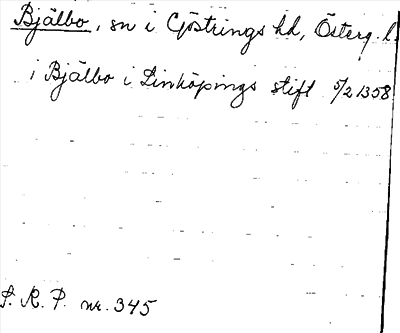 Bjälbo, sn i Göstrings hd, Österg. l.
i Bjälbo i Linköpings stift 5/2 1358
S. R. P. nr. 345